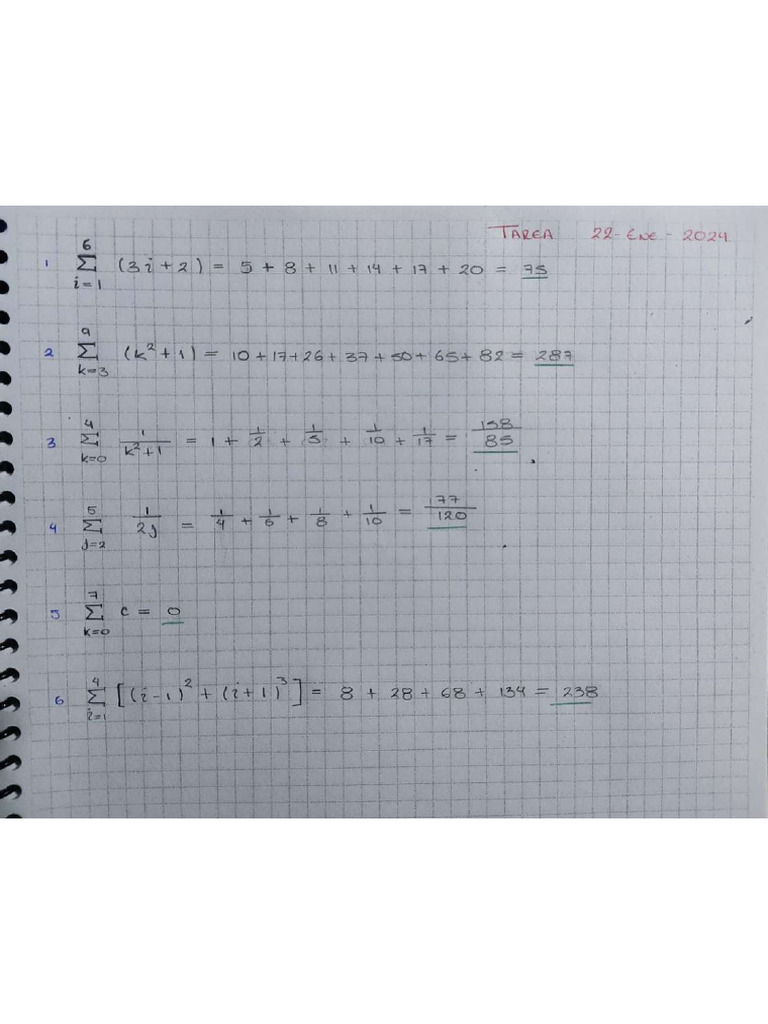 TAREA 22-ENE-2024
1 6 Σ i=1 (3i+2) = 5 + 8 + 11 + 14 + 17 + 20 = 75
2 9 Σ k=3 (k²+1) = 10+17+26+37+50+65+82 = 287
3 4 Σ k=0 1/k²+1 = 1 + 1/2 + 1/5 + 1/10 + 1/17 = 158/85
4 5 Σ j=2 1/2j = 1/4 + 1/6 + 1/8 + 1/10 = 77/120
5 7 Σ k=0 c = 0
6 4 Σ i=1 [(i-1)² + (i+1)³] = 8 + 28 + 68 + 134 = 238